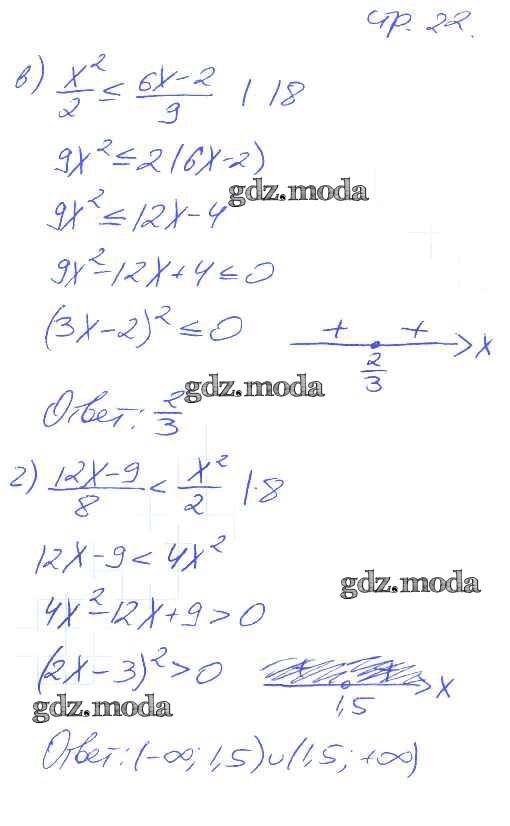 стр. 22.
в) x²/2 ≤ (6x-2)/9 | 18
9x² ≤ 2(6x-2)
gdz.moda
9x² ≤ 12x-4
9x²-12x+4 ≤ 0
(3x-2)² ≤ 0 + + x
2/3
gdz.moda
Ответ: 2/3
г) (12x-9)/8 < x²/2 |·8
12x-9 < 4x²
gdz.moda
4x²-12x+9 > 0
(2x-3)² > 0 x
1,5
gdz.moda
Ответ: (-∞; 1,5)∪(1,5; +∞)